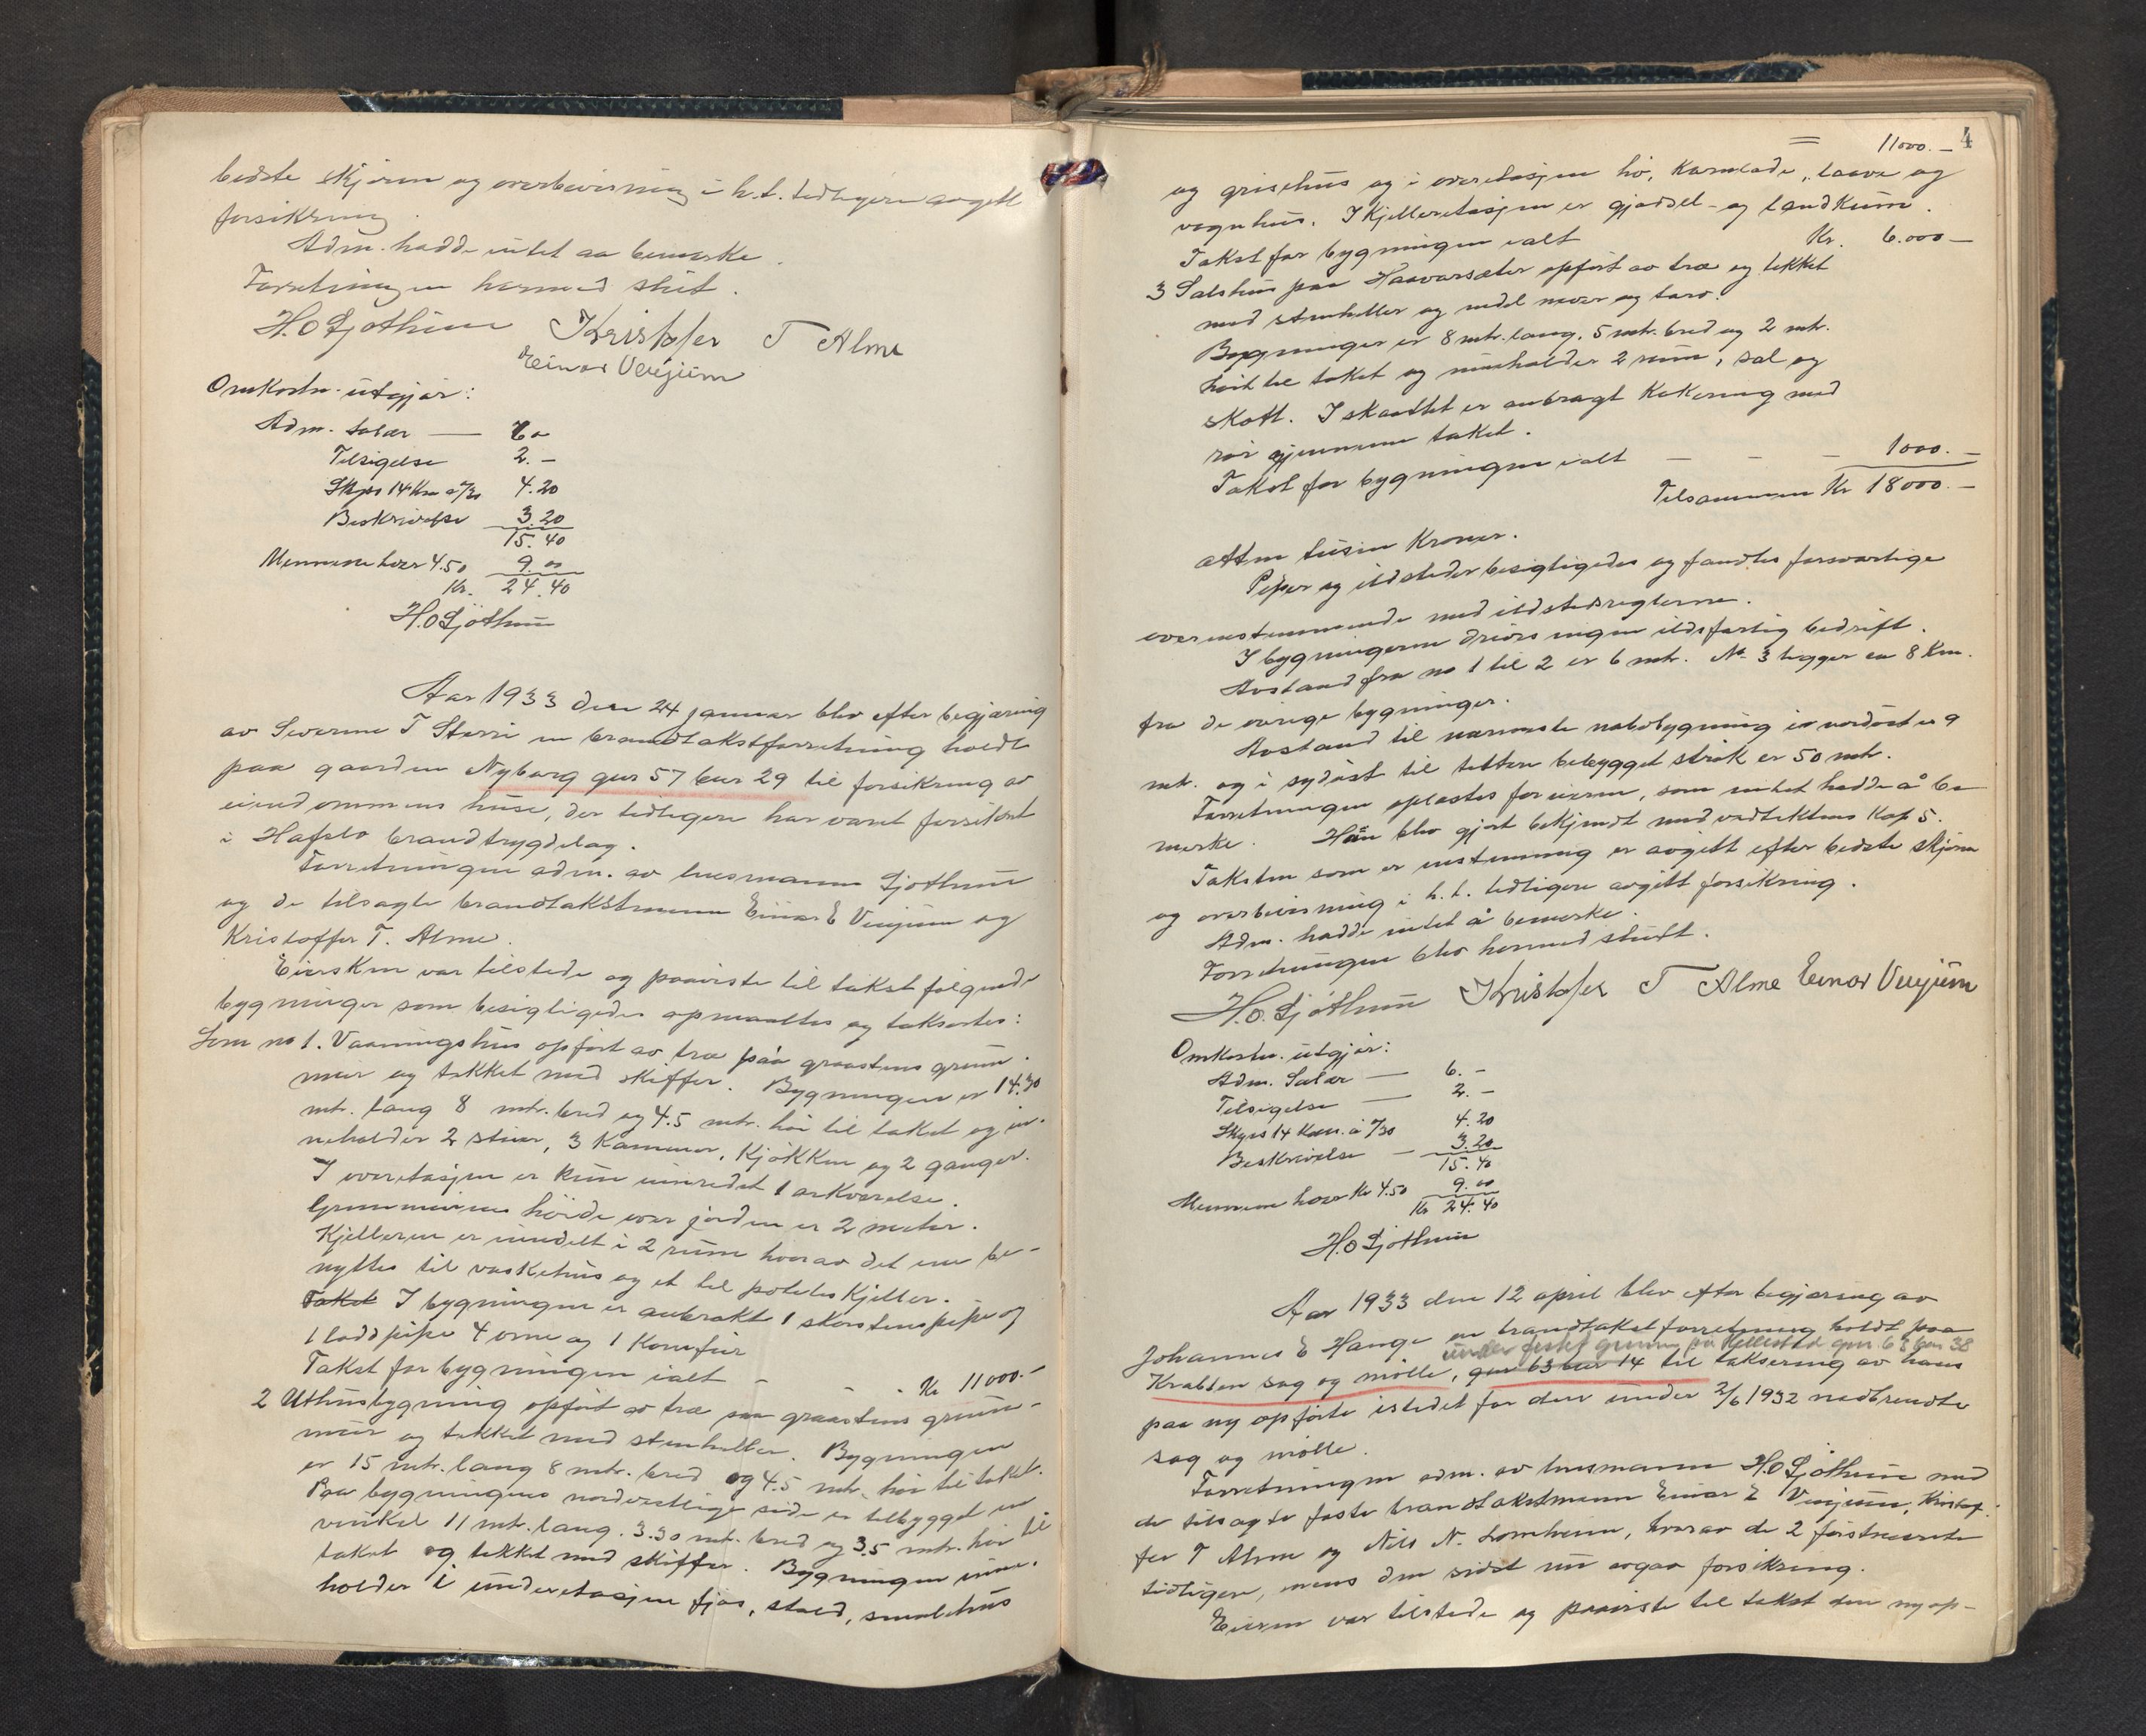 bedste skjønn og overbevisning i h.t. tidligere avgitt
forsikring.
Adm. hadde intet aa bemerke.
Forretningen hermed slut.
H.O Sjøthun Kristofer T Alme
Einar Venjum
Omkostn. utgjør:
Adm. salær — 6 00
Tilsigelse 2.-
Skyss 14 Km a /30 4.20
Beskrivelse 3.20
15.40
Mennene hver 4.50 9.00
Kr. 24.40
H.O Sjøthun
Aar 1933 den 24 januar blev efter begjæring
av Severine T Sterri en brandtakstforretning holdt
paa gaarden Nyborg gnr 57 bnr 29 til forsikring av
eiendommens huse, der tidligere har været forsikret
i Hafslo brandtrygdelag.
Forretningen adm. av lensmann Sjøthun
og de tilsagte brandtakstmenn Einar E Venjum og
Kristoffer T. Alme.
Eiersken var tilstede og paaviste til takst følgende
bygninger som besigtigedes opmaaltes og taksertes:
Som no 1. Vaaningshus opført av træ paa graastens grun-
mur og tekket med skiffer. Bygningen er 14.30
mtr. lang 8 mtr. bred og 4.5 mtr. høi til taket og in-
neholder 2 stuer, 3 Kammer, Kjøkken og 2 ganger.
I overetasjen er kun innredet 1 arkværelse.
Grunmurens høide over jorden er 2 meter.
Kjelleren er inndelt i 2 rum hvorav det ene be-
nyttes til vaskehus og et til potetes Kjeller.
Taket I bygningen er anbrakt 1 skorstenspipe og
1 loddpipe 4 ovne og 1 Komfur
Takst for bygningen ialt - - - Kr 11000.-
2 Uthusbygning opført av træ paa graastens grunn-
mur og tekket med stenheller. Bygningen
er 15 mtr. lang 8 mtr. bred og 4.5 mtr. høi til taket.
Paa bygningens nordvestlige side er tilbygget en
vinkel 11 mtr. lang. 3.30 mtr. bred og 3.5 mtr. høi til
taket og tekket med skiffer. Bygningen inne-
holder i underetasjen fjøs, stald, smalehus
4
11000.-
og grisehus og i overetasjen hø, Kornlade, laave og
vognhus. I Kjelleretasjen er gjødsel- og landkum.
Takst for bygningen ialt Kr. 6.000-
3 Selshus paa Haavarsæter opført av træ og tekket
med stenheller og nedel never og torv.
Bygningen er 8 mtr. lang, 5 mtr. bred og 2 mtr.
høit til taket og inneholder 2 rum, sel og
skott. I skaattet er anbragt Kokeovn med
rør gjennem taket.
Takst for bygningen ialt - - - 1000.-
Tilsammen Kr 18000.-
atten tusin Kroner.
Piper og ildsteder besigtigedes og fandtes forsvarlige
overenstemmende med ildstedsreglerne.
I bygningerne drives ingen ildsfarlig bedrift.
Avstand fra no 1 til 2 er 6 mtr. No 3 ligger ca 8 Km.
fra de øvrige bygninger.
Avstand til nærmeste nabobygning i nordøst er 9
mtr. og i sydøst til tettere bebygget strøk er 50 mtr.
Forretningen oplæstes for eieren, som intet hadde å be
merke. Han blev gjort bekjendt med vedtektens Kap 5.
Taksten som er enstemmig er avgitt efter bedste skjønn
og overbevisning i h. t. tidligere avgitt forsikring.
Adm. hadde intet å bemerke.
Forretningen blev hermed sluttt.
H.O. Sjøthun Kristofer T Alme Einar Venjum
Omkostn. utgjør:
Adm. Salær — 6.-
Tilsigelse — 2.-
Skyss 14 Km. a /30 4.20
Beskrivelse — 3.20
15.40
Mennene hver Kr 4.50 9.00
Kr 24.40
H.O Sjøthun
Aar 1933 den 12 april blev efter begjæring av
Johannes E Hauge en brandtakstforretning holdt paa
under festet grunn på Hillestad gnr 63 bnr 38
Krabben sag og mølle, gnr 63 bnr 14 til taksering av hans
paa ny opførte istedet for den under 2/6 1932 nedbrendte
sag og mølle.
Forretningen adm. av lensmann H.O Sjøthun med
de tilsagte faste brandtakstmenn Einar E Venjum, Kristof-
fer T Alme og Nils N. Lomheim, hvorav de 2 førstnevnte
tidligere, mens den sidst nu avgav forsikring.
Eieren var tilstede og paaviste til takst den ny op-